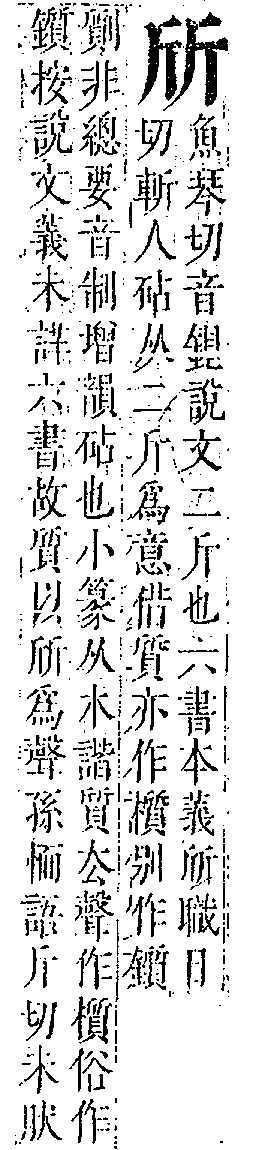 斦
魚琴切音說文二斤也六書本義斦職日
切斬人砧从二斤爲意借質亦作櫍別作鑕
劕非總要音制增韻砧也小篆从木諧質聲作櫍俗作
鑕按說文義未詳六書故質以斦爲聲孫愐語斤切未肰